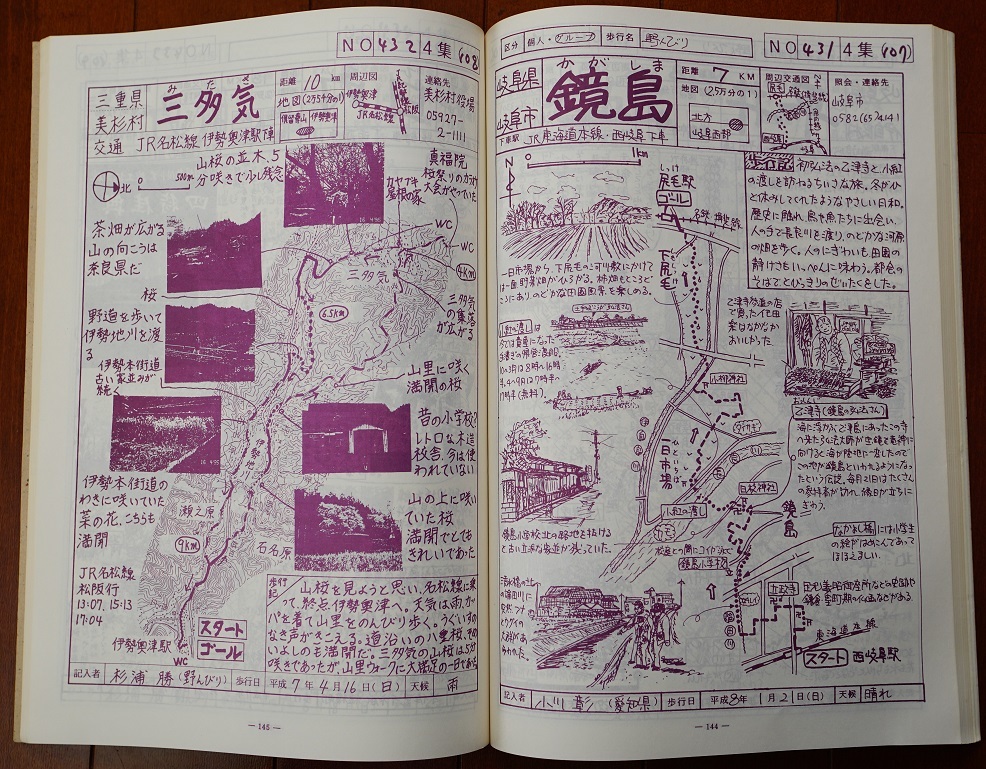 NO 432 4集(108)
三重県
美杉村
みたけ
三多気
距離 10 km
地図(2万5千分の1)
周辺図
伊勢奥津
JR名松線
松阪
連絡先
美杉村役場
05927-
2-1111
交通 JR名松線 伊勢奥津駅下車
北
500m
山桜の並木、5
分咲きで少し残念
カヤブキ
屋根の家
真福院
桜祭りのカラオケ
大会がやっていた
WC
WC
4km
茶畑が広がる
山の向こうは
奈良県だ
桜
三多気
6.5km
三多気
の集落
が広がる
野道を歩いて
伊勢地川を渡
る
伊勢本街道
古い家並みが
続く
山里に咲く
満開の桜
昔の小学校?
レトロな木造
校舎、今は使
われていない
伊勢地
伊勢本街道の
わきに咲いていた
菜の花、こちらも
満開
瀬之原
9km
石名原
山の上に咲い
ていた桜
満開でとても
きれいであった
JR名松線
松阪行
13:07, 15:13
17:04
伊勢奥津駅
WC
スタート
ゴール
歩行記
山桜を見ようと思い、名松線に乗
って、終点伊勢奥津へ。天気は雨、カッ
パを着て山里をのんびり歩く。うぐいすの
なき声がきこえる。道沿いの八重桜、その
いよしのも満開だ。三多気の山桜は5分
咲きであったが、山里ウォークに大満足の一日であった
記入者 杉浦 勝(野んびり) 歩行日 平成7年4月16日(日) 天候 雨
— 145 —
区分 個人・グループ 歩行名 野んびり
NO 431 4集(107)
岐阜県
岐阜市
かがしま
鏡島
距離 7 KM
地図(2.5万分の1)
北方
岐阜西部
周辺交通図
照会・連絡先
岐阜市
0582(65)4141
下車駅 JR東海道本線・西岐阜下車
N
0 1km
しっけ
尻毛駅
ゴール
名鉄揖斐線
下尻毛
初弘法の乙津寺と、小紅
の渡しを訪ねるちいさな旅。冬がひ
と休みしてくれたようなやさしい日和。
歴史に触れ、鳥や魚たちに出会い、
人の手で長良川を渡り、のどかな河原
の畑を歩く。人のにぎわいも田園の
静けさもいっぺんに味わう。都会の
そばでとびっきりのぜいたくをした。
一日市場から、下尻毛の河川敷にかけて
は一面野菜畑がひろがる。柿畑もところど
ころにありのどかな田園風景を楽しめる。
乙津寺参道の店
で買った
はなかなか
おいしかった
小紅の渡しは
今では貴重になった
小柳神社
ひといちば
一日市場
小紅の渡し
白髭神社
おっしんじ
乙津寺(鏡島の弘法さん)
海に浮かぶ乙津島にあったこの寺
へ来た弘法大師が宝鏡を竜神に
向けると海が陸地に一変したので
この地が鏡島といわれるようになっ
たという伝説。毎月21日はたくさん
の参拝者が訪れ、縁日が立ちに
ぎわう。
鏡島小学校北の路地を抜ける
と古い立派な家並が残っていた。
鏡島小学校
鏡島
なかよし橋には小学生
の絵がはめこんであって
ほほえましい。
立政寺
東海道本線
スタート 西岐阜駅
記入者 小川 彰 (愛知県) 歩行日 平成8年1月21日(日) 天候 晴れ
— 144 —